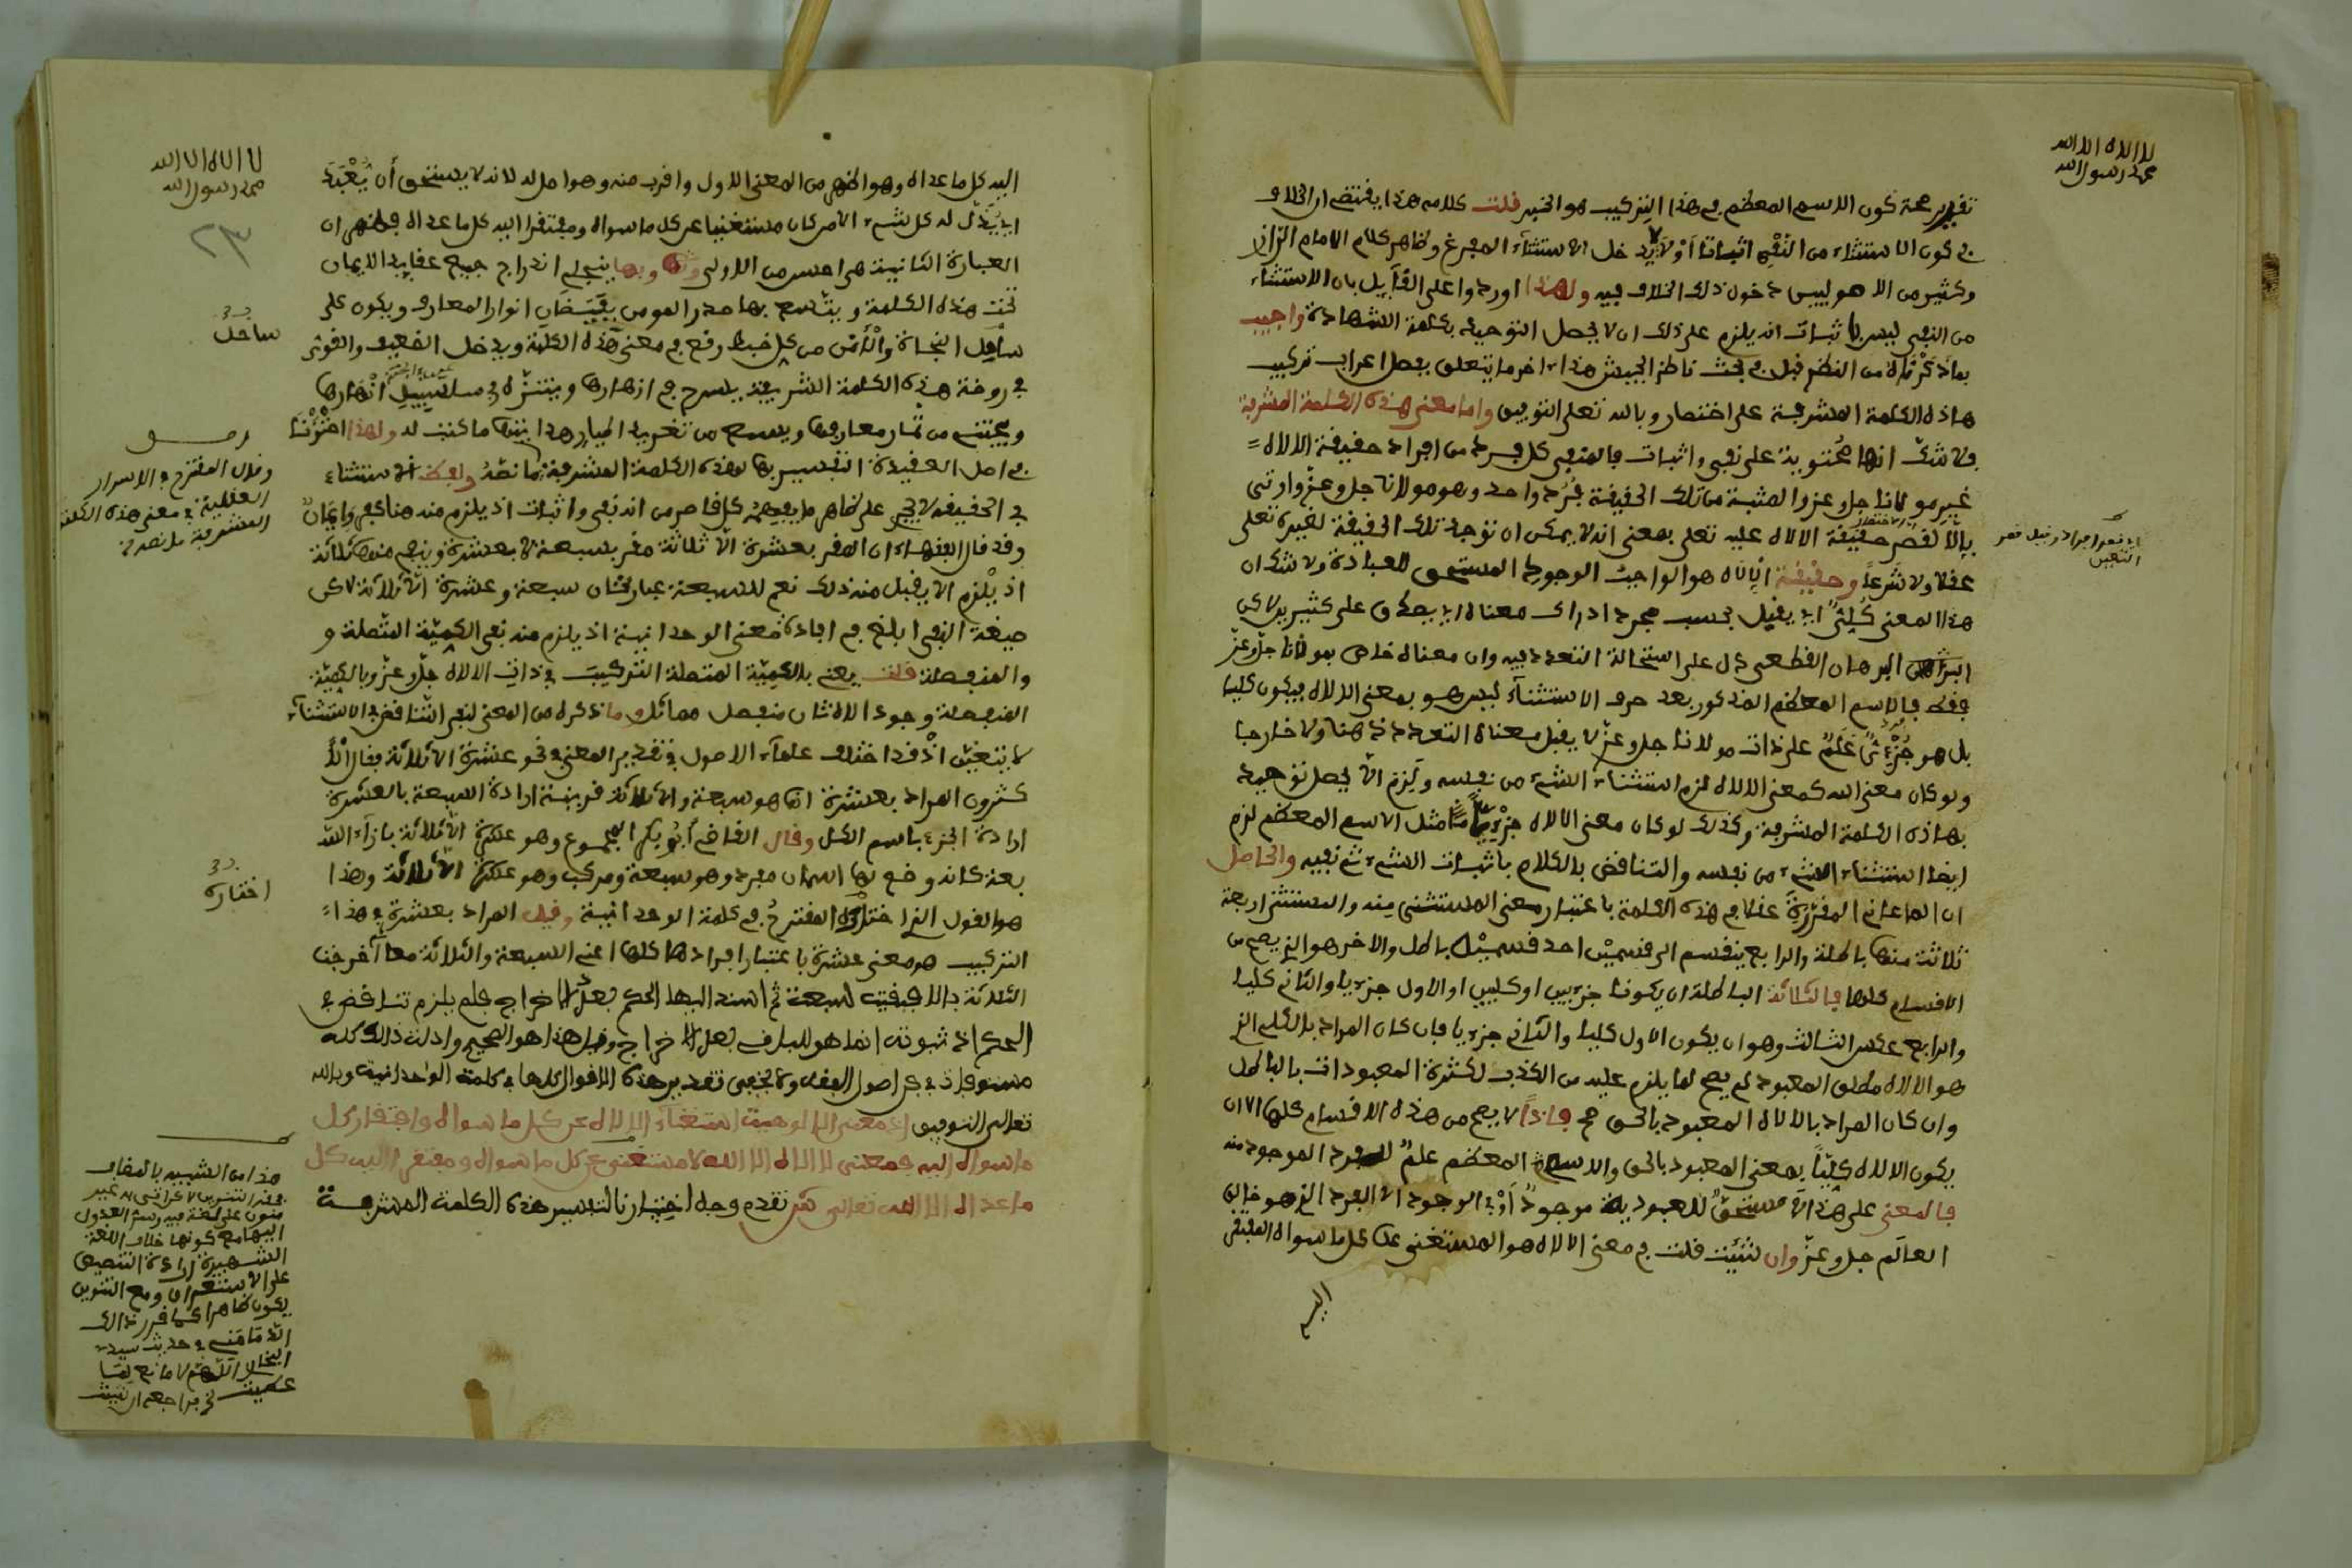 لا الاه الا الله
محمد رسول الله
تقرير صحة كون الاسم المعظم في هذا التركيب هو الخبر قلت كلامه هذا يقتضي ان الخلاف
في كون الاستثناء من النفي اثباتا أو لا يدخل الاستثناء المفرغ وظاهر كلام الامام الرازي
وكثير من الاصوليين دخول ذلك الخلاف فيه ولهذا اوردوا على القايل بان الاستثناء
من النفي ليس باثبات انه يلزم على ذلك ان لا يحصل التوحيد بكلمة الشهادة واجيب
بما ذكرناه من النظر قبل في بحث ناظر الجيش هذا اخر ما يتعلق بفصل اعراب تركيب
هاذه الكلمة المشرفة على اختصار وبالله تعلى التوفيق واما معنى هذه الكلمة المشرفة
فلا شك انها محتوية على نفي واثبات فالمنفي كل فرد من افراد حقيقة الالاه
غير مولانا جل وعز والمثبت من تلك الحقيقة فرد واحد وهو مولانا جل وعز واوتي
بالا لقصر حقيقة الالاه عليه تعلى بمعنى انه لا يمكن ان توجد تلك الحقيقة لغيره تعلى
عقلا ولا شرعا وحقيقة الالاه هو الواجب الوجود المستحق للعبادة ولا شك ان
هذا المعنى كلي اي يقبل بحسب مجرد ادراك معناه ان يصدق على كثيرين لاكن
البرهان القطعي دل على استحالة التعدد فيه وان معناه خاص بمولانا جل وعز
فقط فالاسم المعظم المذكور بعد حرف الاستثناء ليس هو بمعنى الالاه فيكون كليا
بل هو جزئي علم على ذات مولانا جل وعز لا يقبل معناه التعدد ذهنا ولا خارجا
ولو كان معنى الله كمعنى الالاه لزم استثناء الشيء من نفسه ولزم الا يحصل توحيد
بهاذه الكلمة المشرفة وكذلك لو كان معنى الالاه جزئيا مثل الاسم المعظم لزم
ايضا استثناء الشيء من نفسه والتناقض بالكلام باثبات الشيء ثم نفيه والحاصل
ان المعاني المقررة عقلا في هذه الكلمة باعتبار معنى المستثنى منه والمستثنى اربعة
ثلاثة منها باطلة والرابع ينقسم الى قسمين احد قسميه باطل والاخر هو الذي يصح من
الاقسام كلها فالثلاثة الباطلة ان يكونا جزءيين او كليين او الاول جزءيا والثاني كليا
والرابع عكس الثالث وهو ان يكون الاول كليا والثاني جزءيا فان كان المراد بالكلي الذي
هو الالاه مطلق المعبود لم يصح لما يلزم عليه من الكذب لكثرة المعبودات بالباطل
وان كان المراد بالالاه المعبود بالحق صح فاذا لا يصح من هذه الاقسام كلها الا ان
يكون الالاه كليا بمعنى المعبود بالحق والاسم المعظم علم للفرد الموجود منه
فالمعنى على هذا لا مستحق للعبودية موجود أو في الوجود الا الفرد الذي هو خالق
العالم جل وعز وان شئت قلت في معنى الالاه هو المستغني عن كل ما سواه المفتقر
اليه
لا الاه الا الله
محمد رسول الله
٢٣
اليه كل ما عداه وهو اظهر من المعنى الاول واقرب منه وهو اصل له لانه لا يستحق أن يعبد
اي يذل له كل شيء الا من كان مستغنيا عن كل ما سواه ومفتقرا اليه كل ما عداه فظهر ان
العبارة الثانية هي احسن من الاولى وبها ينجلي اندراج جميع عقايد الايمان
تحت هذه الكلمة ويتسع بها صدر المومن بفيضان انوار المعارف ويكون على
ساحل النجاة والأمن من كل خبط وقع في معنى هذه الكلمة ويدخل الضعيف والقوي
في روضة هذه الكلمة الشريفة يسرح في ازهارها ويتنزه في سلسبيل انهارها
ويجتني من ثمار معارفها ويسمع من تغريد اطيار هدايتها ما كتب له ولهذا اخترنا
في اصل العقيدة التفسير بها لهذه الكلمة المشرفة ما نصه ولفظ الاستثناء
في الحقيقة لا يجري على ظاهر ما يفهمه كل قاصر من انه نفي واثبات اذ يلزم منه هنا كفر وايمان
وقد قال الفقهاء ان المقر بعشرة الا ثلاثة مقر بسبعة لا بعشرة ونفي منها ثلاثة
اذ يلزم الا يقبل منه ذلك نعم للسبعة عبارتان سبعة وعشرة الا ثلاثة لاكن
صيغة النفي ابلغ في افادة معنى الوحدانية اذ يلزم منه نفي الكمية المتصلة و
والمنفصلة قلت يعني بالكمية المتصلة التركيب في ذات الالاه جل وعز وبالكمية
المنفصلة وجود الاه ثان منفصل مماثل وما ذكره من المعنى لنفي التناقض في الاستثناء
لا يتعين اذ قد اختلف علماء الاصول في تقدير المعنى في نحو عشرة الا ثلاثة فقال الأ
كثرون المراد بعشرة انما هو سبعة والا ثلاثة قرينة ارادة السبعة بالعشرة
ارادة الجزء باسم الكل وقال القاضي ابو بكر المجموع وهو عشرة الا ثلاثة بازاء السـ
بعة كانه وضع لها اسمان مفرد وهو سبعة ومركب وهو عشرة الا ثلاثة وهذا
هو القول الذي اختاره المقترح في كلمة الوحدانية وقيل المراد بعشرة في هذا
التركيب هو معنى عشرة باعتبار افرادها كلها اعني السبعة والثلاثة معا أخرجت
الثلاثة بالا فبقيت سبعة ثم اسند اليها الحكم بعد الاخراج فلم يلزم تناقض في
الحكم اذ ثبوته انما هو للباقي بعد الاخراج وقيل هذا هو الصحيح وادلة ذالك كله
مستوفاة في فن اصول الفقه ولا يخفى تقدير هذه الاقوال كلها في كلمة الواحدانية وبالله
تعالى التوفيق اذ معنى الالوهية استغناء الالاه عن كل ما سواه وافتقار كل
ما سواه اليه فمعنى لا الاه الا الله لا مستغني عن كل ما سواه ومفتقرا اليه كل
ما عداه الا الله تعالى ش تقدم وجه اختيارنا لتفسير هذه الكلمة المشرفة
ساحل
وقال المقترح في الاسرار
العقلية في معنى هذه الكلمة
المشرفة ما نصه
اختاره
هذا من الشبيه بالمضاف
منون على لغة
اليها مع كونها خلاف اللغة
الشهيرة ارادة التنصيص
على الاستغراق ومع التنوين
يكون ظاهرا كما قرر ذالك
الدماميني في حديث
البخاري اللهم لا مانع لما
اعطيت فراجعه ان شئت